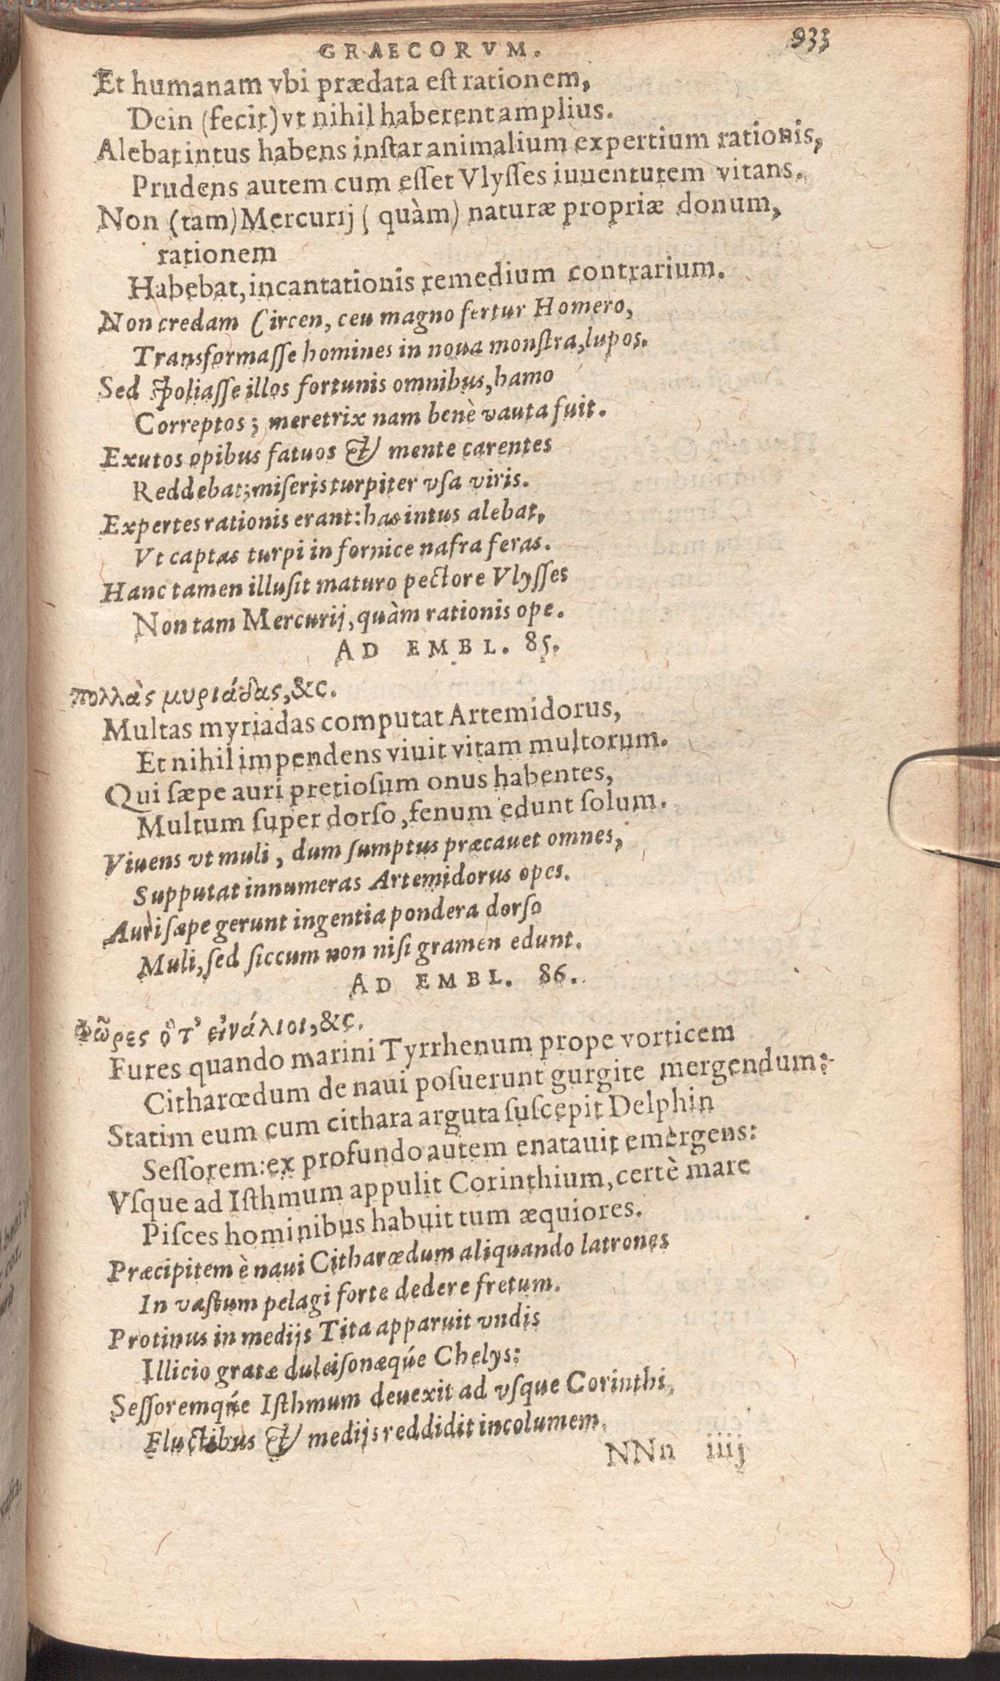 GRAECORVM. 933
Et humanam vbi prædata est rationem,
Dein (fecit) vt nihil haberent amplius.
Alebat intus habens instar animalium expertium rationis,
Prudens autem cum esset Vlysses iuuentutem vitans.
Non (tam) Mercurij ( quàm) naturæ propriæ donum,
rationem
Habebat, incantationis remedium contrarium.
Non credam Circen, ceu magno fertur Homero,
Transformasse homines in noua monstra, lupos.
Sed spoliasse illos fortunis omnibus, hamo
Correptos; meretrix nam benè vauta fuit.
Exutos opibus fatuos & mente carentes
Reddebat; miseris turpiter vsa viris.
Expertes rationis erant: has intus alebat,
Vt captas turpi in fornice nafra feras.
Hanc tamen illusit maturo pectore Vlysses
Non tam Mercurij, quàm rationis ope.
AD EMBL. 85.
πολλὰς μυριάδας, &c.
Multas myriadas computat Artemidorus,
Et nihil impendens viuit vitam multorum.
Qui sæpe auri pretiosum onus habentes,
Multum super dorso, fenum edunt solum.
Viuens vt muli, dum sumptus præcauet omnes,
Supputat innumeras Artemidorus opes.
Auri sæpe gerunt ingentia pondera dorso
Muli, sed siccum non nisi gramen edunt.
AD EMBL. 86.
Φῶρες ὅτ' εἰνάλιοι, &c.
Fures quando marini Tyrrhenum prope vorticem
Citharœdum de naui posuerunt gurgite mergendum:
Statim eum cum cithara arguta suscepit Delphin
Sessorem: ex profundo autem enatauit emergens:
Vsque ad Isthmum appulit Corinthium, certè mare
Pisces hominibus habuit tum æquiores.
Præcipitem è naui Citharœdum aliquando latrones
In vastum pelagi forte dedere fretum.
Protinus in medijs Tita apparuit vndis
Illicio gratæ dulcisonæq́ue Chelys:
Sessoremq́ue Isthmum deuexit ad vsque Corinthi,
Fluctibus & medijs reddidit incolumem.
NNn iiij